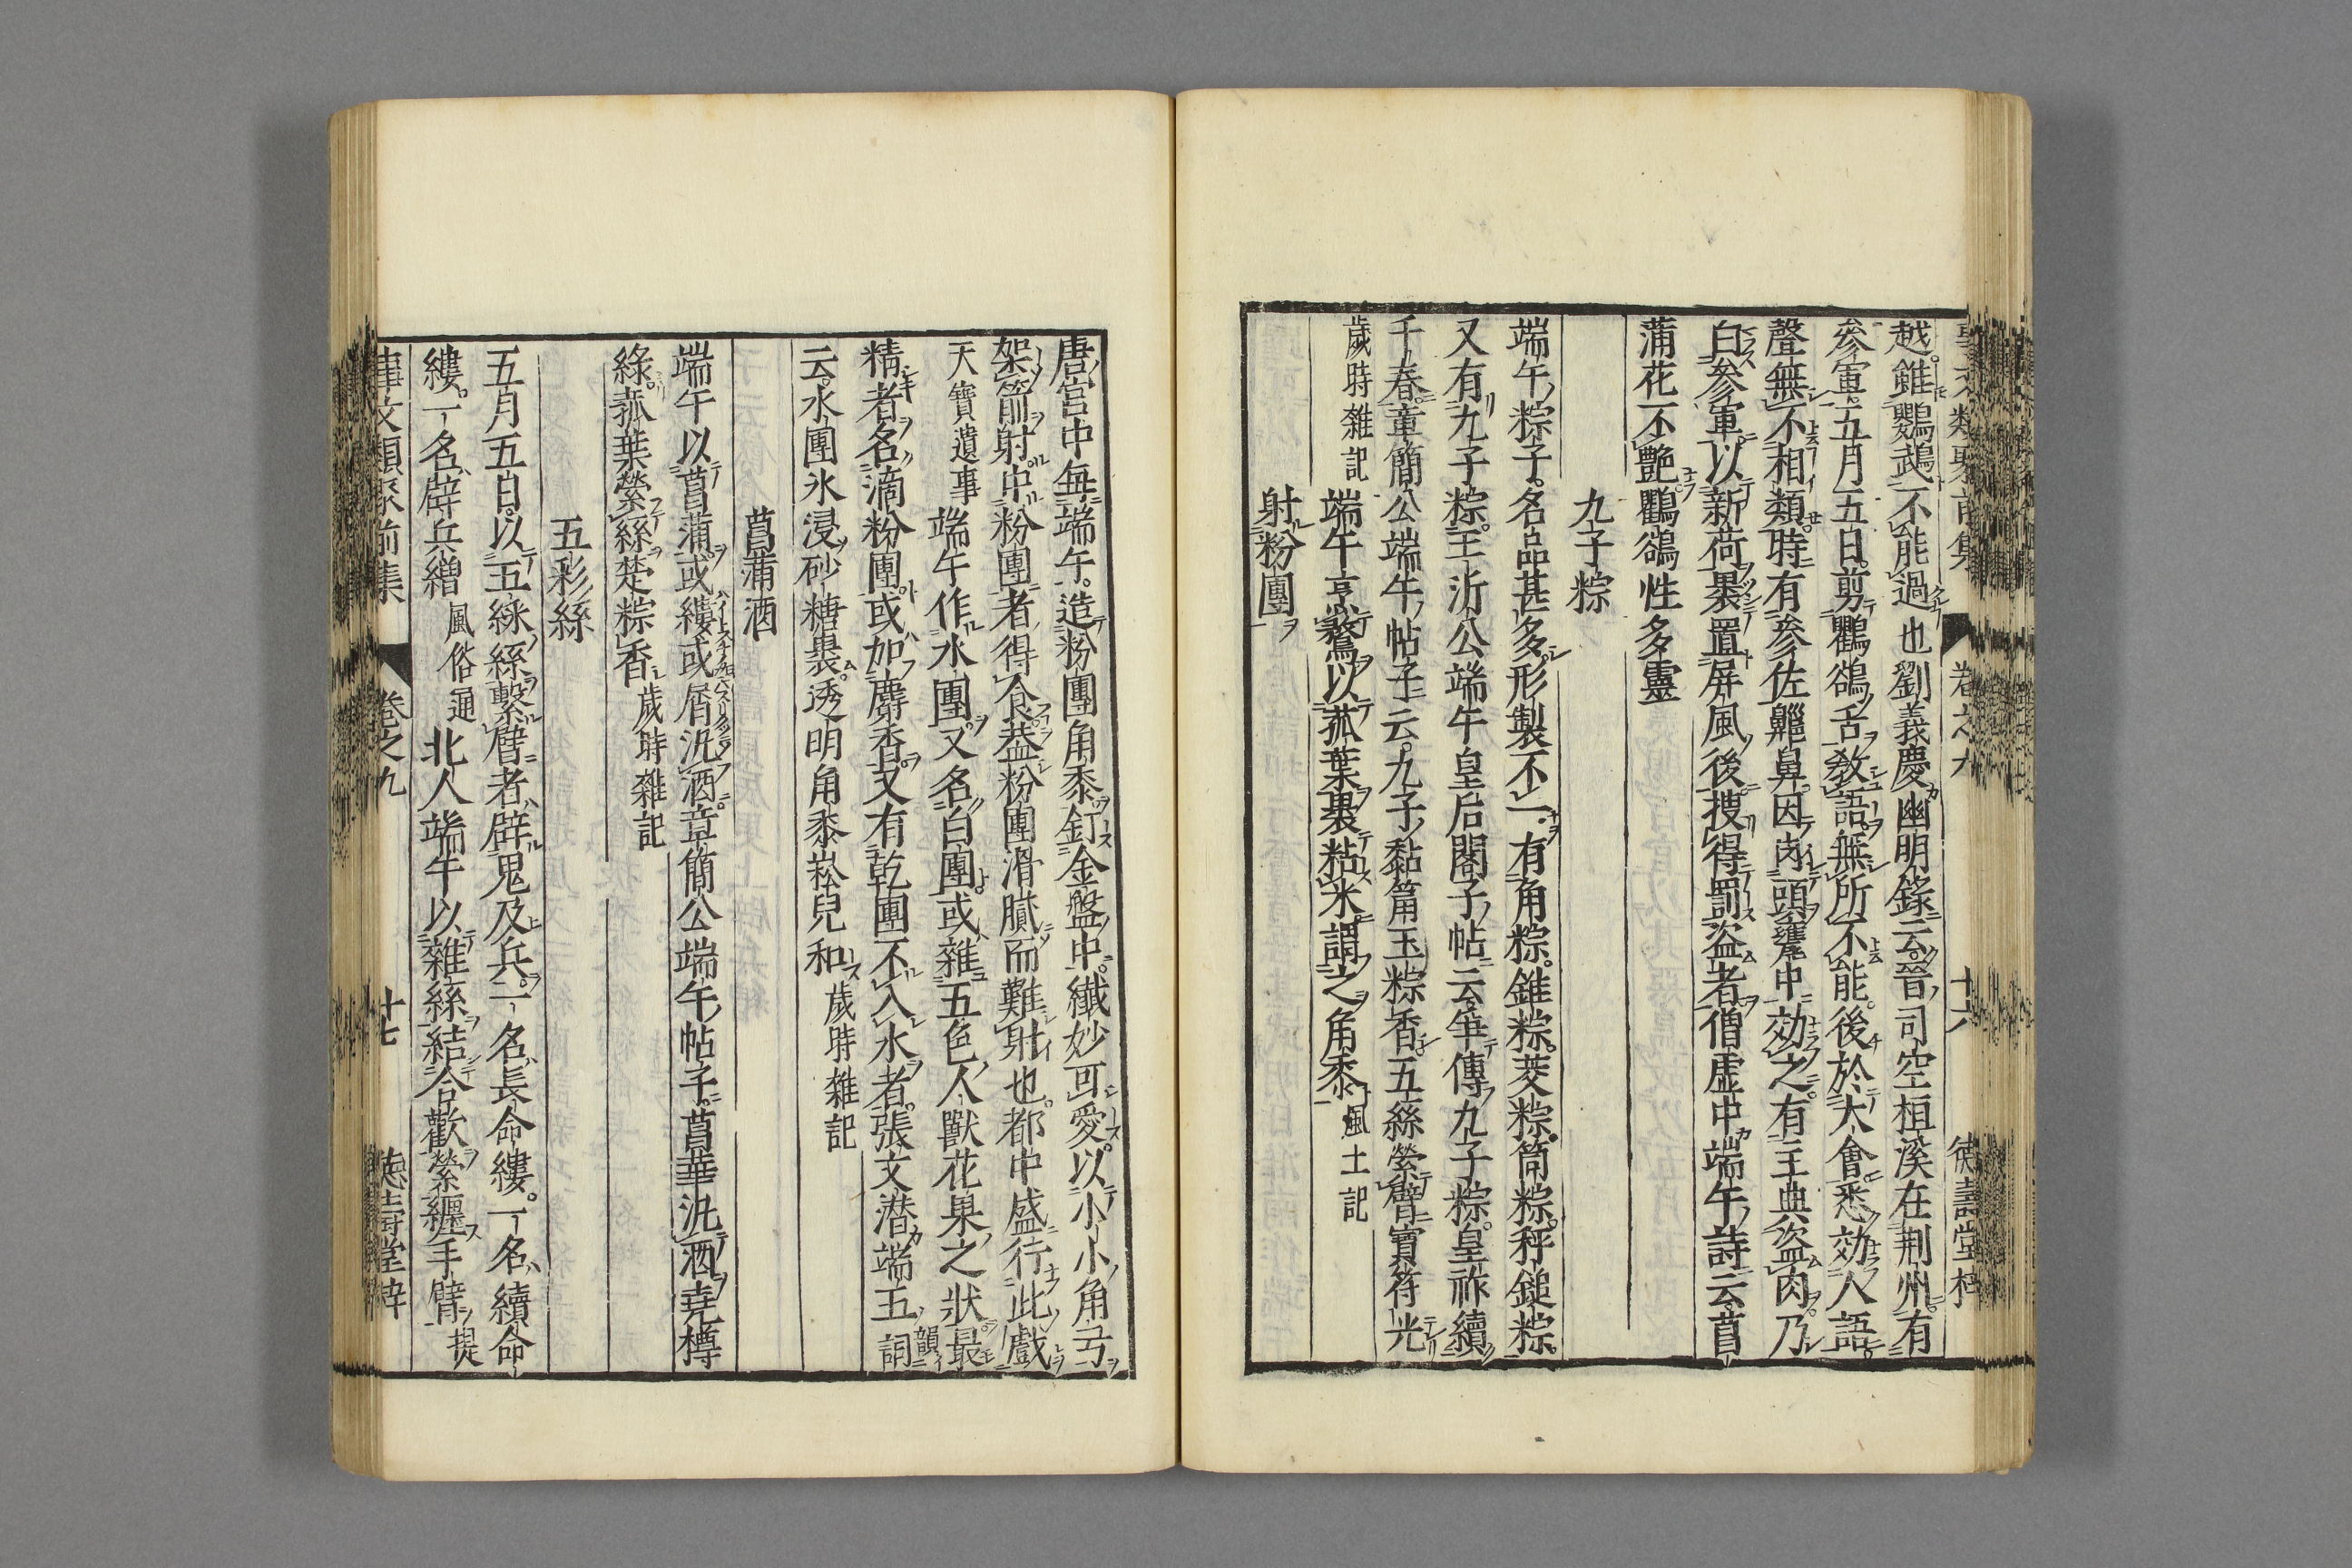 越雖鸚鵡不能過也劉義慶幽明錄云晉司空桓溪在荆州有
參軍五月五日剪鸜鵒舌教語無所不能後於大會悉効人語
聲無不相類時有參佐齆鼻因内頭甕中効之有主典盜肉乃
白參軍以新荷褁置屏風後搜得罰盜者僧虛中端午詩云菖
蒲花不艶鸜鵒性多靈
九子粽
端午粽子名品甚多形製不一有角粽錐粽菱粽筒粽秤鎚粽
又有九子粽王沂公端午皇后閣子帖云爭傳九子粽皇祚續
千春章簡公端午帖子云九子黏筩玉粽香五絲縈臂寶符光
歲時雜記　端午烹鶩以菰葉褁粘米謂之角黍風土記
射粉團
唐宮中每端午造粉團角黍飣金盤中纎妙可愛以小小角弓
架箭射中粉團者得食葢粉團滑膩而難射也都中盛行此戲
天寶遺事　端午作水團又名白團或雜五色人獸花果之狀最
精者名滴粉團或加麝香又有乾團不入水者張文潜端五詞韻
云水團氷浸砂糖褁透明角黍崧兒和歲時雜記
菖蒲酒
端午以菖蒲或縷或屑泛酒章簡公端午帖子菖華泛酒堯樽
綠菰葉縈絲楚粽香歲時雜記
五彩絲
五月五日以五綵絲繫臂者辟鬼及兵一名長命縷一名續命
縷一名辟兵繒風俗通　北人端午以雜絲結合歡縈纒手臂提
事文類聚前集　卷之九　十七　德壽堂梓